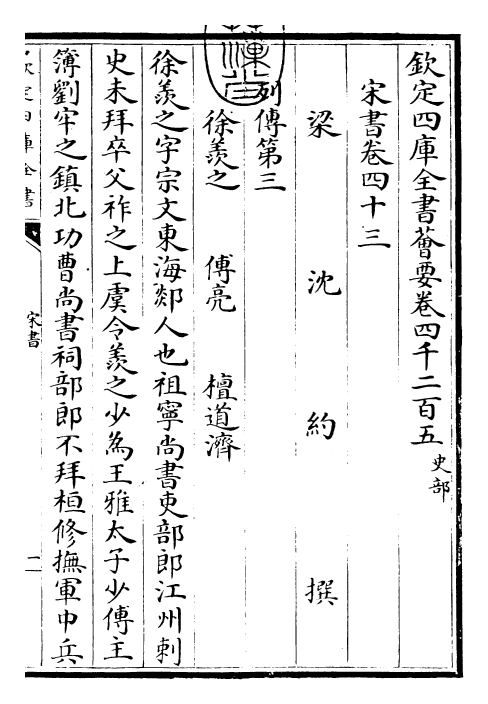 欽定四庫全書薈要卷四千二百五 史部
宋書卷四十三
梁 沈 約 撰
列傳第三
徐羨之 傅亮 檀道濟
徐羨之字宗文東海郯人也祖寧尚書吏部郎江州刺
史未拜卒父祚之上虞令羨之少為王雅太子少傅主
簿劉牢之鎮北功曹尚書祠部郎不拜桓修撫軍中兵
欽定四庫全書
宋書